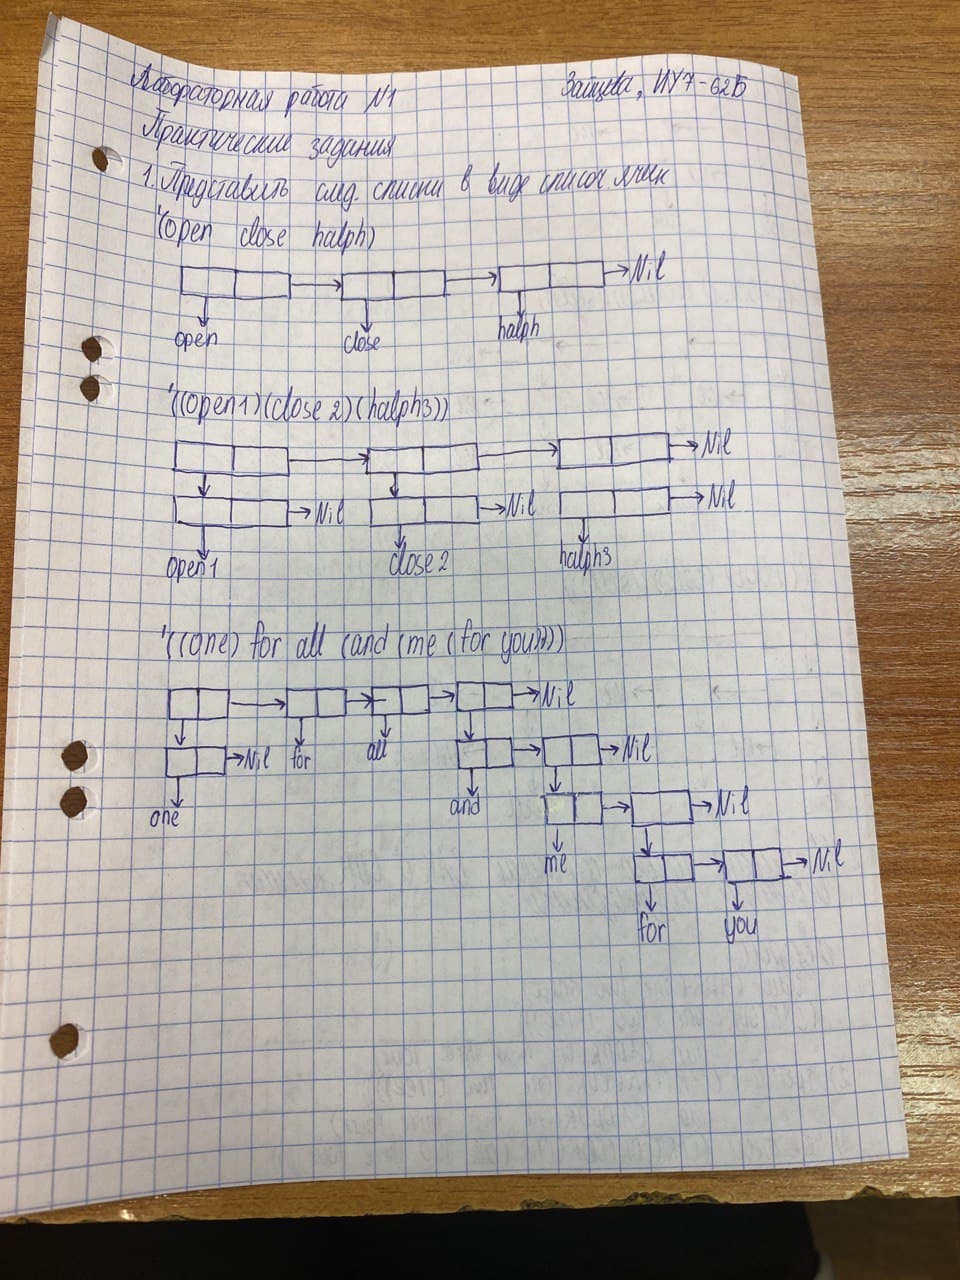 Лабораторная работа N1
Зайцева, ИУ7-62Б
Практические задания
1. Представить след. списки в виде списоч. ячеек
'(open close halph)
Nil
open close halph
'((open1)(close 2)(halph3))
Nil
Nil Nil Nil
open1 close 2 halph3
'((one) for all (and (me (for you))))
Nil
Nil for all Nil
one and Nil
me Nil
for you